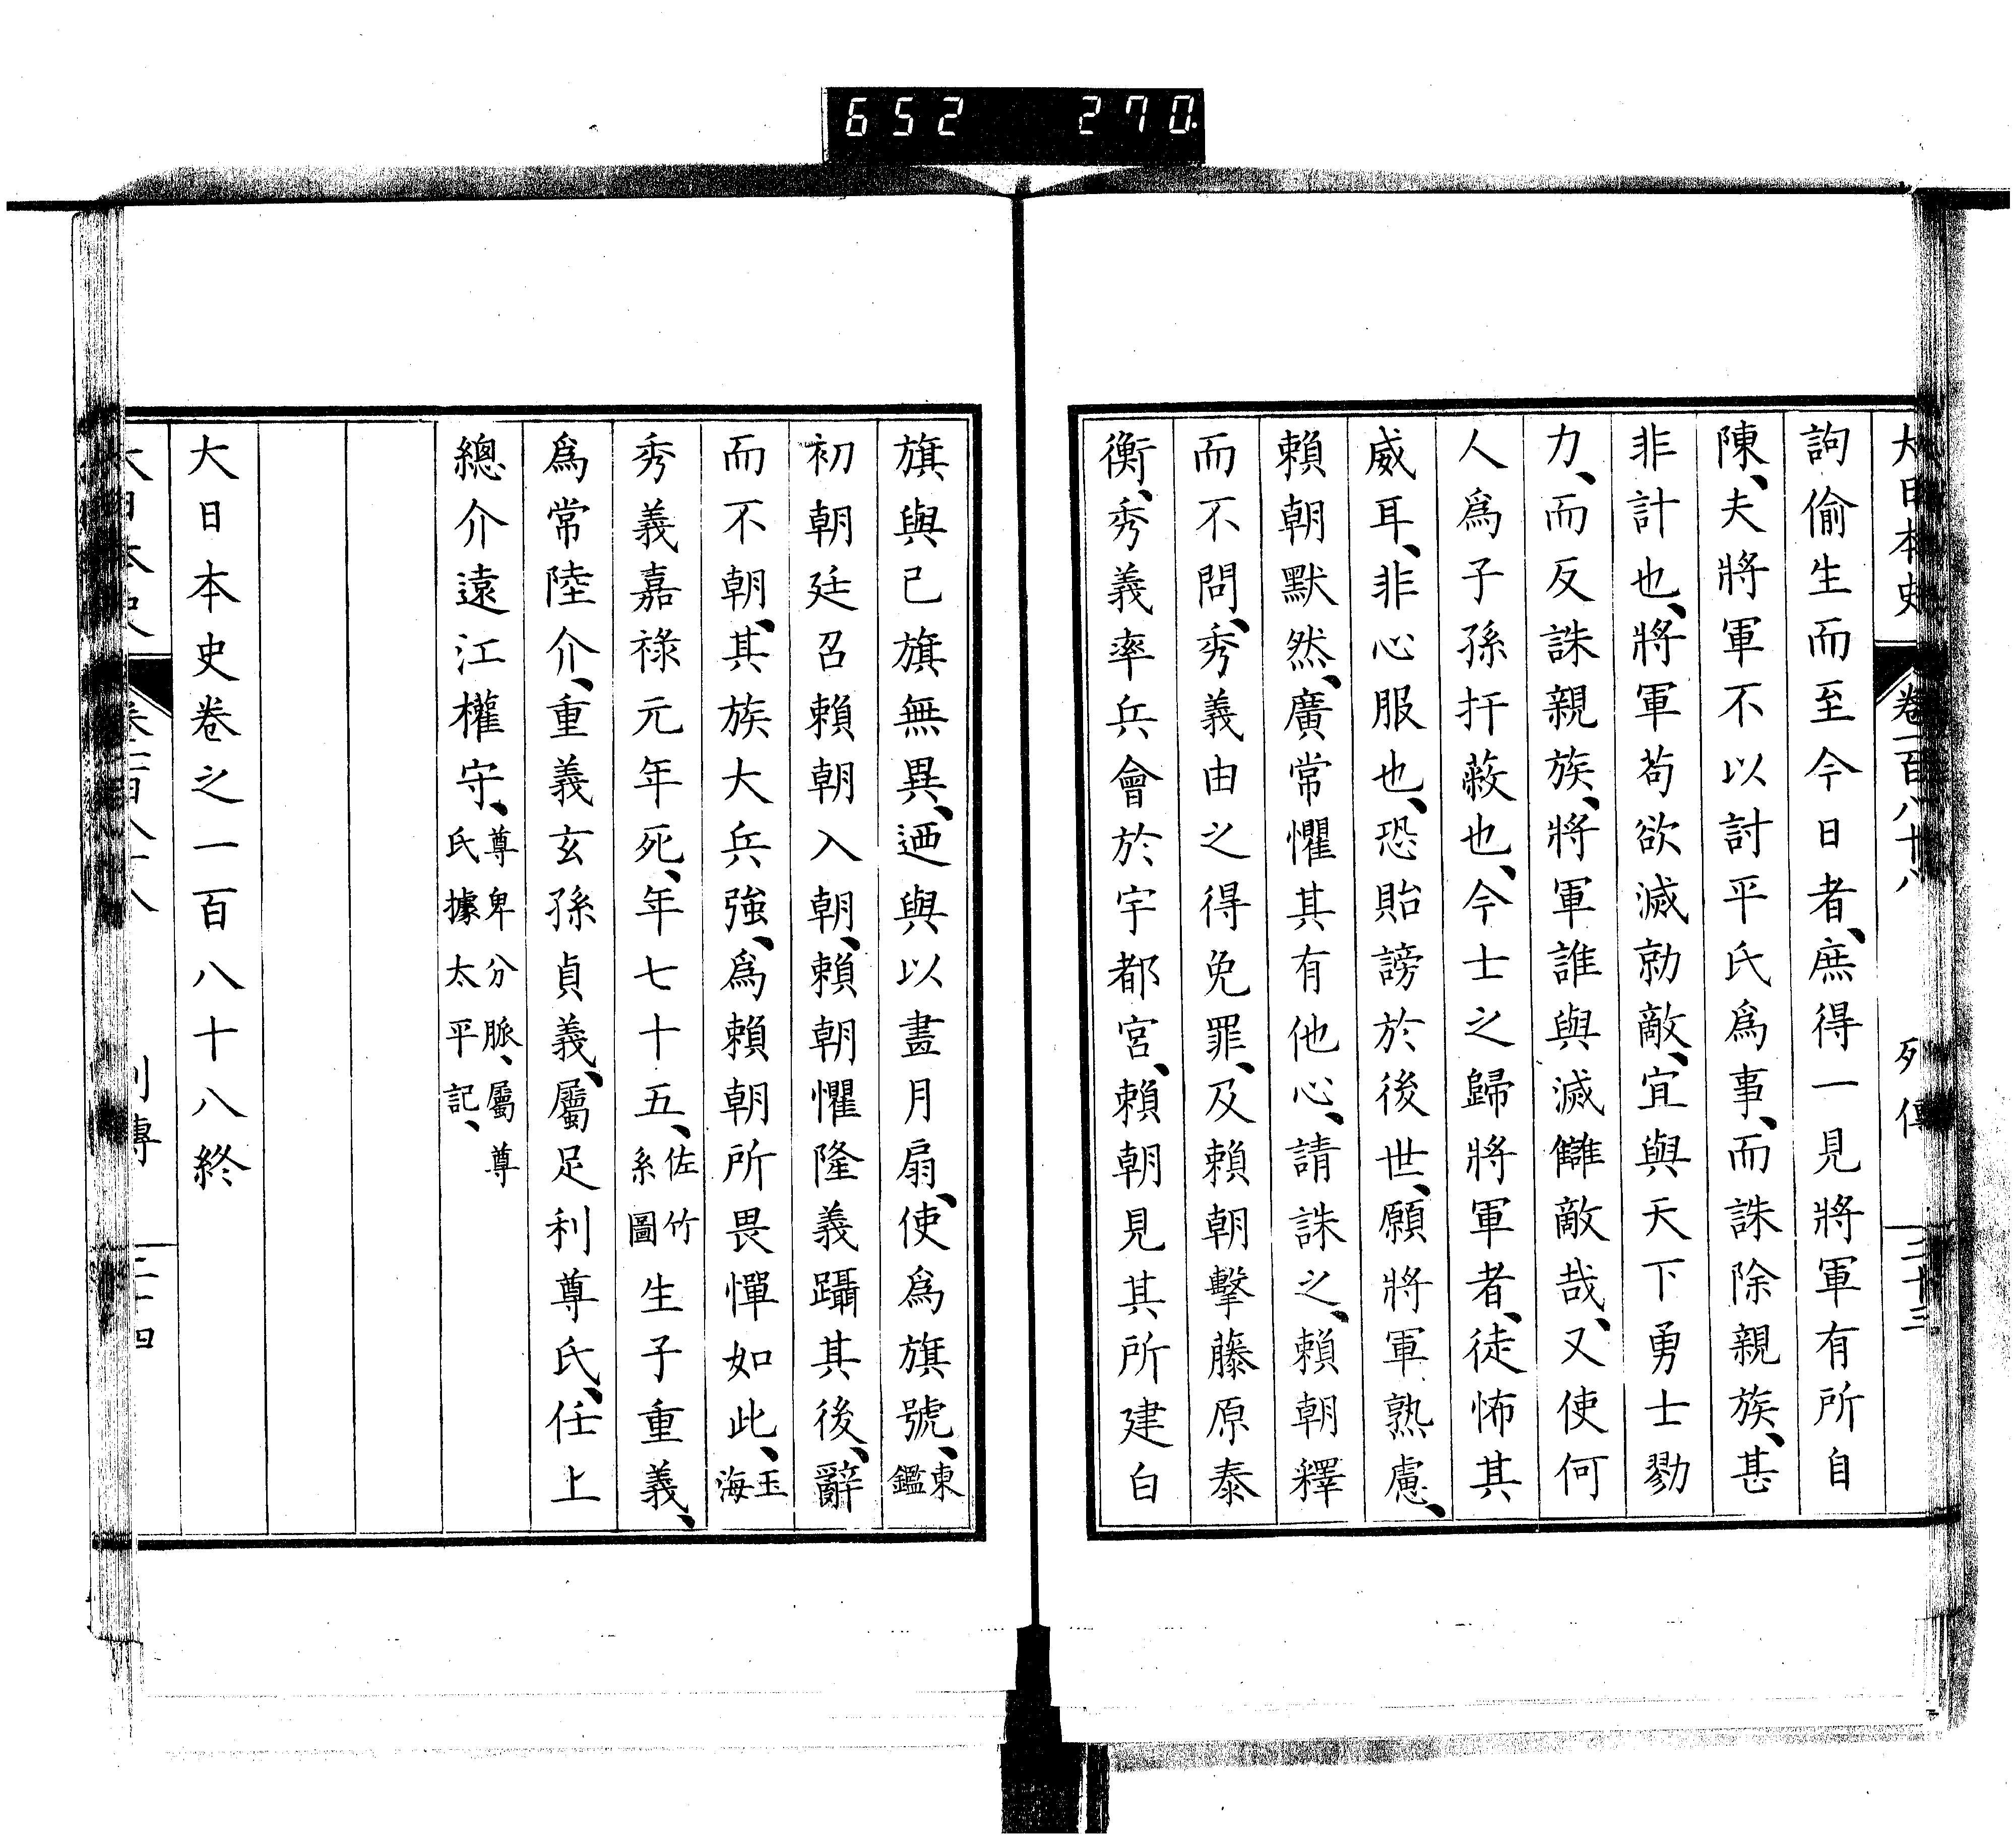 652 270.
大日本史 卷一百八十八 列傳 二十三
詢偷生而至今日者、庶得一見將軍有所自
陳、夫將軍不以討平氏爲事、而誅除親族、甚
非計也、將軍苟欲滅勍敵、宜與天下勇士勠
力、而反誅親族、將軍誰與滅讎敵哉、又使何
人爲子孫扞蔽也、今士之歸將軍者、徒怖其
威耳、非心服也、恐貽謗於後世、願將軍熟慮、
賴朝默然、廣常懼其有他心、請誅之、賴朝釋
而不問、秀義由之得免罪、及賴朝擊藤原泰
衡、秀義率兵會於宇都宮、賴朝見其所建白
旗與已旗無異、迺與以畫月扇、使爲旗號、東鑑
初朝廷召賴朝入朝、賴朝懼隆義躡其後、辭
而不朝、其族大兵強、爲賴朝所畏憚如此、玉海
秀義嘉祿元年死、年七十五、佐竹系圖生子重義、
爲常陸介、重義玄孫貞義、屬足利尊氏、任上
總介遠江權守、尊卑分脈、屬尊氏據太平記、
大日本史卷之一百八十八終
大日本史 卷一百八十八 列傳 二十四